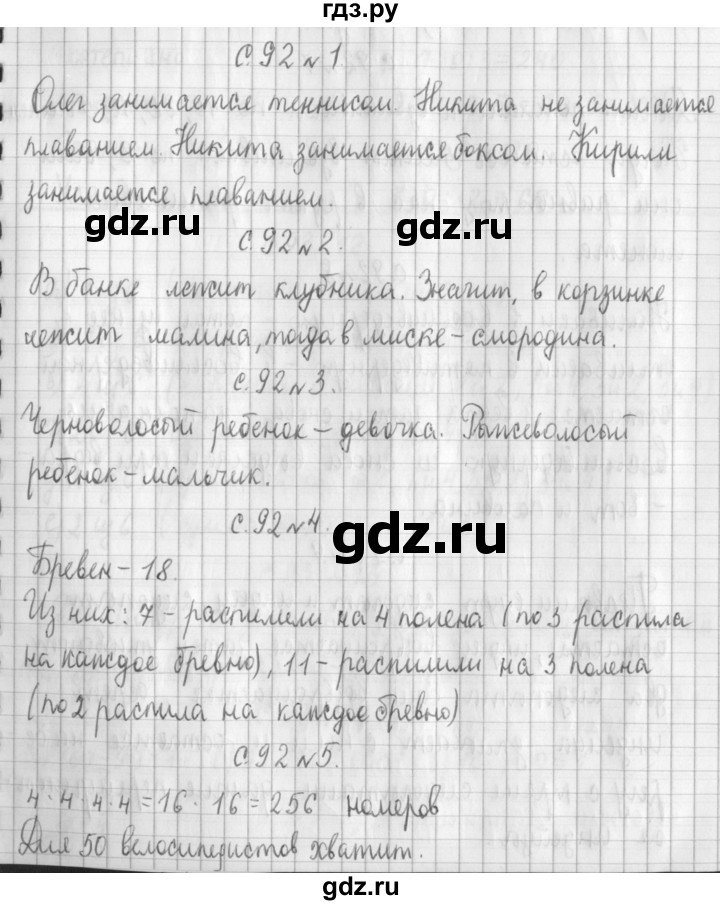 гдз.ру
С.92 № 1.
Олег занимается теннисом. Никита не занимается
плаванием. Никита занимается боксом. Кирилл
занимается плаванием.
gdz.ru
gdz.ru
С.92 № 2.
В банке лежит клубника. Значит, в корзинке
лежит малина, тогда в миске - смородина.
С.92 № 3.
Черноволосый ребенок - девочка. Рыжеволосый
ребенок - мальчик.
С.92 № 4.
gdz.ru
Бревен - 18.
Из них: 7 - распилили на 4 полена (по 3 распила
на каждое бревно), 11 - распилили на 3 полена
(по 2 распила на каждое бревно)
С.92 № 5.
4 · 4 · 4 · 4 = 16 · 16 = 256 номеров
Для 50 велосипедистов хватит.
gdz.ru